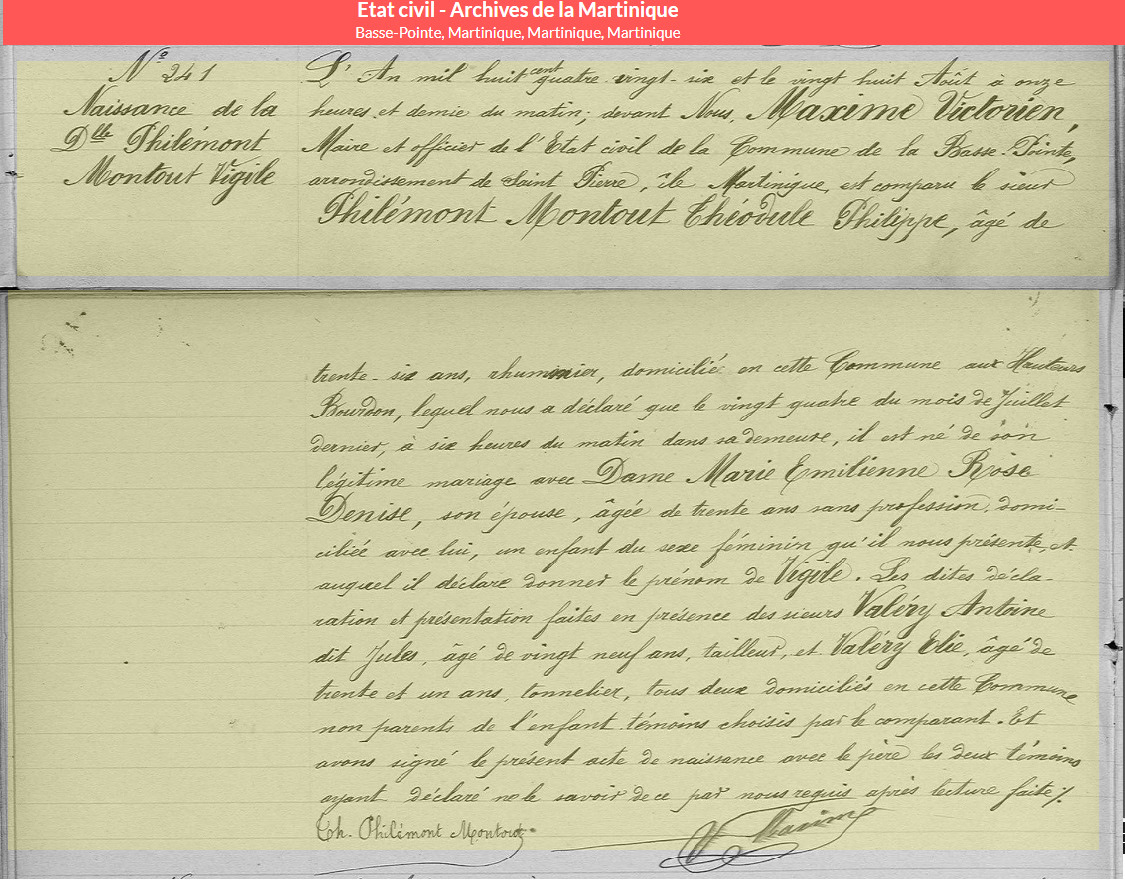 Etat civil - Archives de la Martinique
Basse-Pointe, Martinique, Martinique, Martinique
N° 241
Naissance de la
Dlle Philémont
Montout Vigile
L'An mil huit cent quatre-vingt-six et le vingt huit Août à onze
heures et demie du matin; devant Nous, Maxime Victorien,
Maire et officier de l'Etat civil de la Commune de la Basse-Pointe,
arrondissement de Saint Pierre, île Martinique, est comparu le sieur
Philémont Montout Théodule Philippe, âgé de
trente-six ans, rhummier, domicilié en cette Commune aux Hauteurs
Bourdon, lequel nous a déclaré que le vingt quatre du mois de Juillet
dernier, à six heures du matin dans sa demeure, il est né de son
légitime mariage avec Dame Marie Emilienne Rose
Denise, son épouse, âgée de trente ans sans profession, domi-
ciliée avec lui, un enfant du sexe féminin qu'il nous présente, et
auquel il déclare donner le prénom de Vigile. Les dites décla-
ration et présentation faites en présence des sieurs Valéry Antoine
dit Jules, âgé de vingt neuf ans, tailleur, et Valéry Elie, âgé de
trente et un ans, tonnelier, tous deux domiciliés en cette Commune
non parents de l'enfant témoins choisis par le comparant. Et
avons signé le présent acte de naissance avec le père les deux témoins
ayant déclaré ne le savoir de ce par nous requis après lecture faite ./.
Th. Philémont Montout
V Maxime